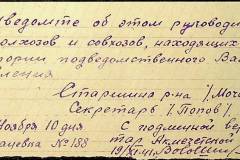 уведомьте об этом руководи
олхозов и совхозов, находящих
ории подведомственного Ва
ления
Старшина р-на /Моча
Секретарь /Попов/
ноября 10 дня
С подлинной вер
№ 188